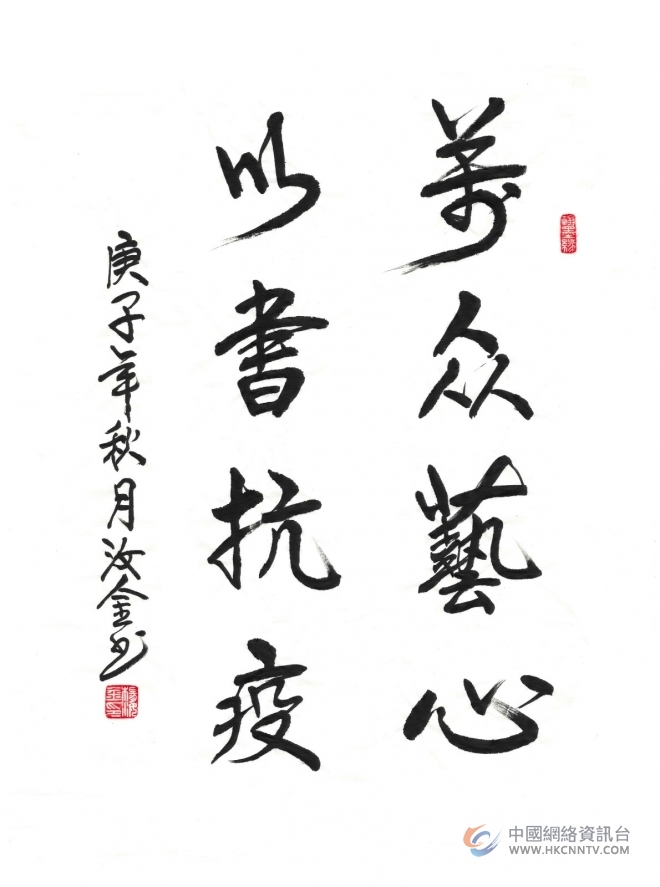 萬众藝心
以書抗疫
庚子年秋月汝金书
中國網絡資訊台
WWW.HKCNNTV.COM